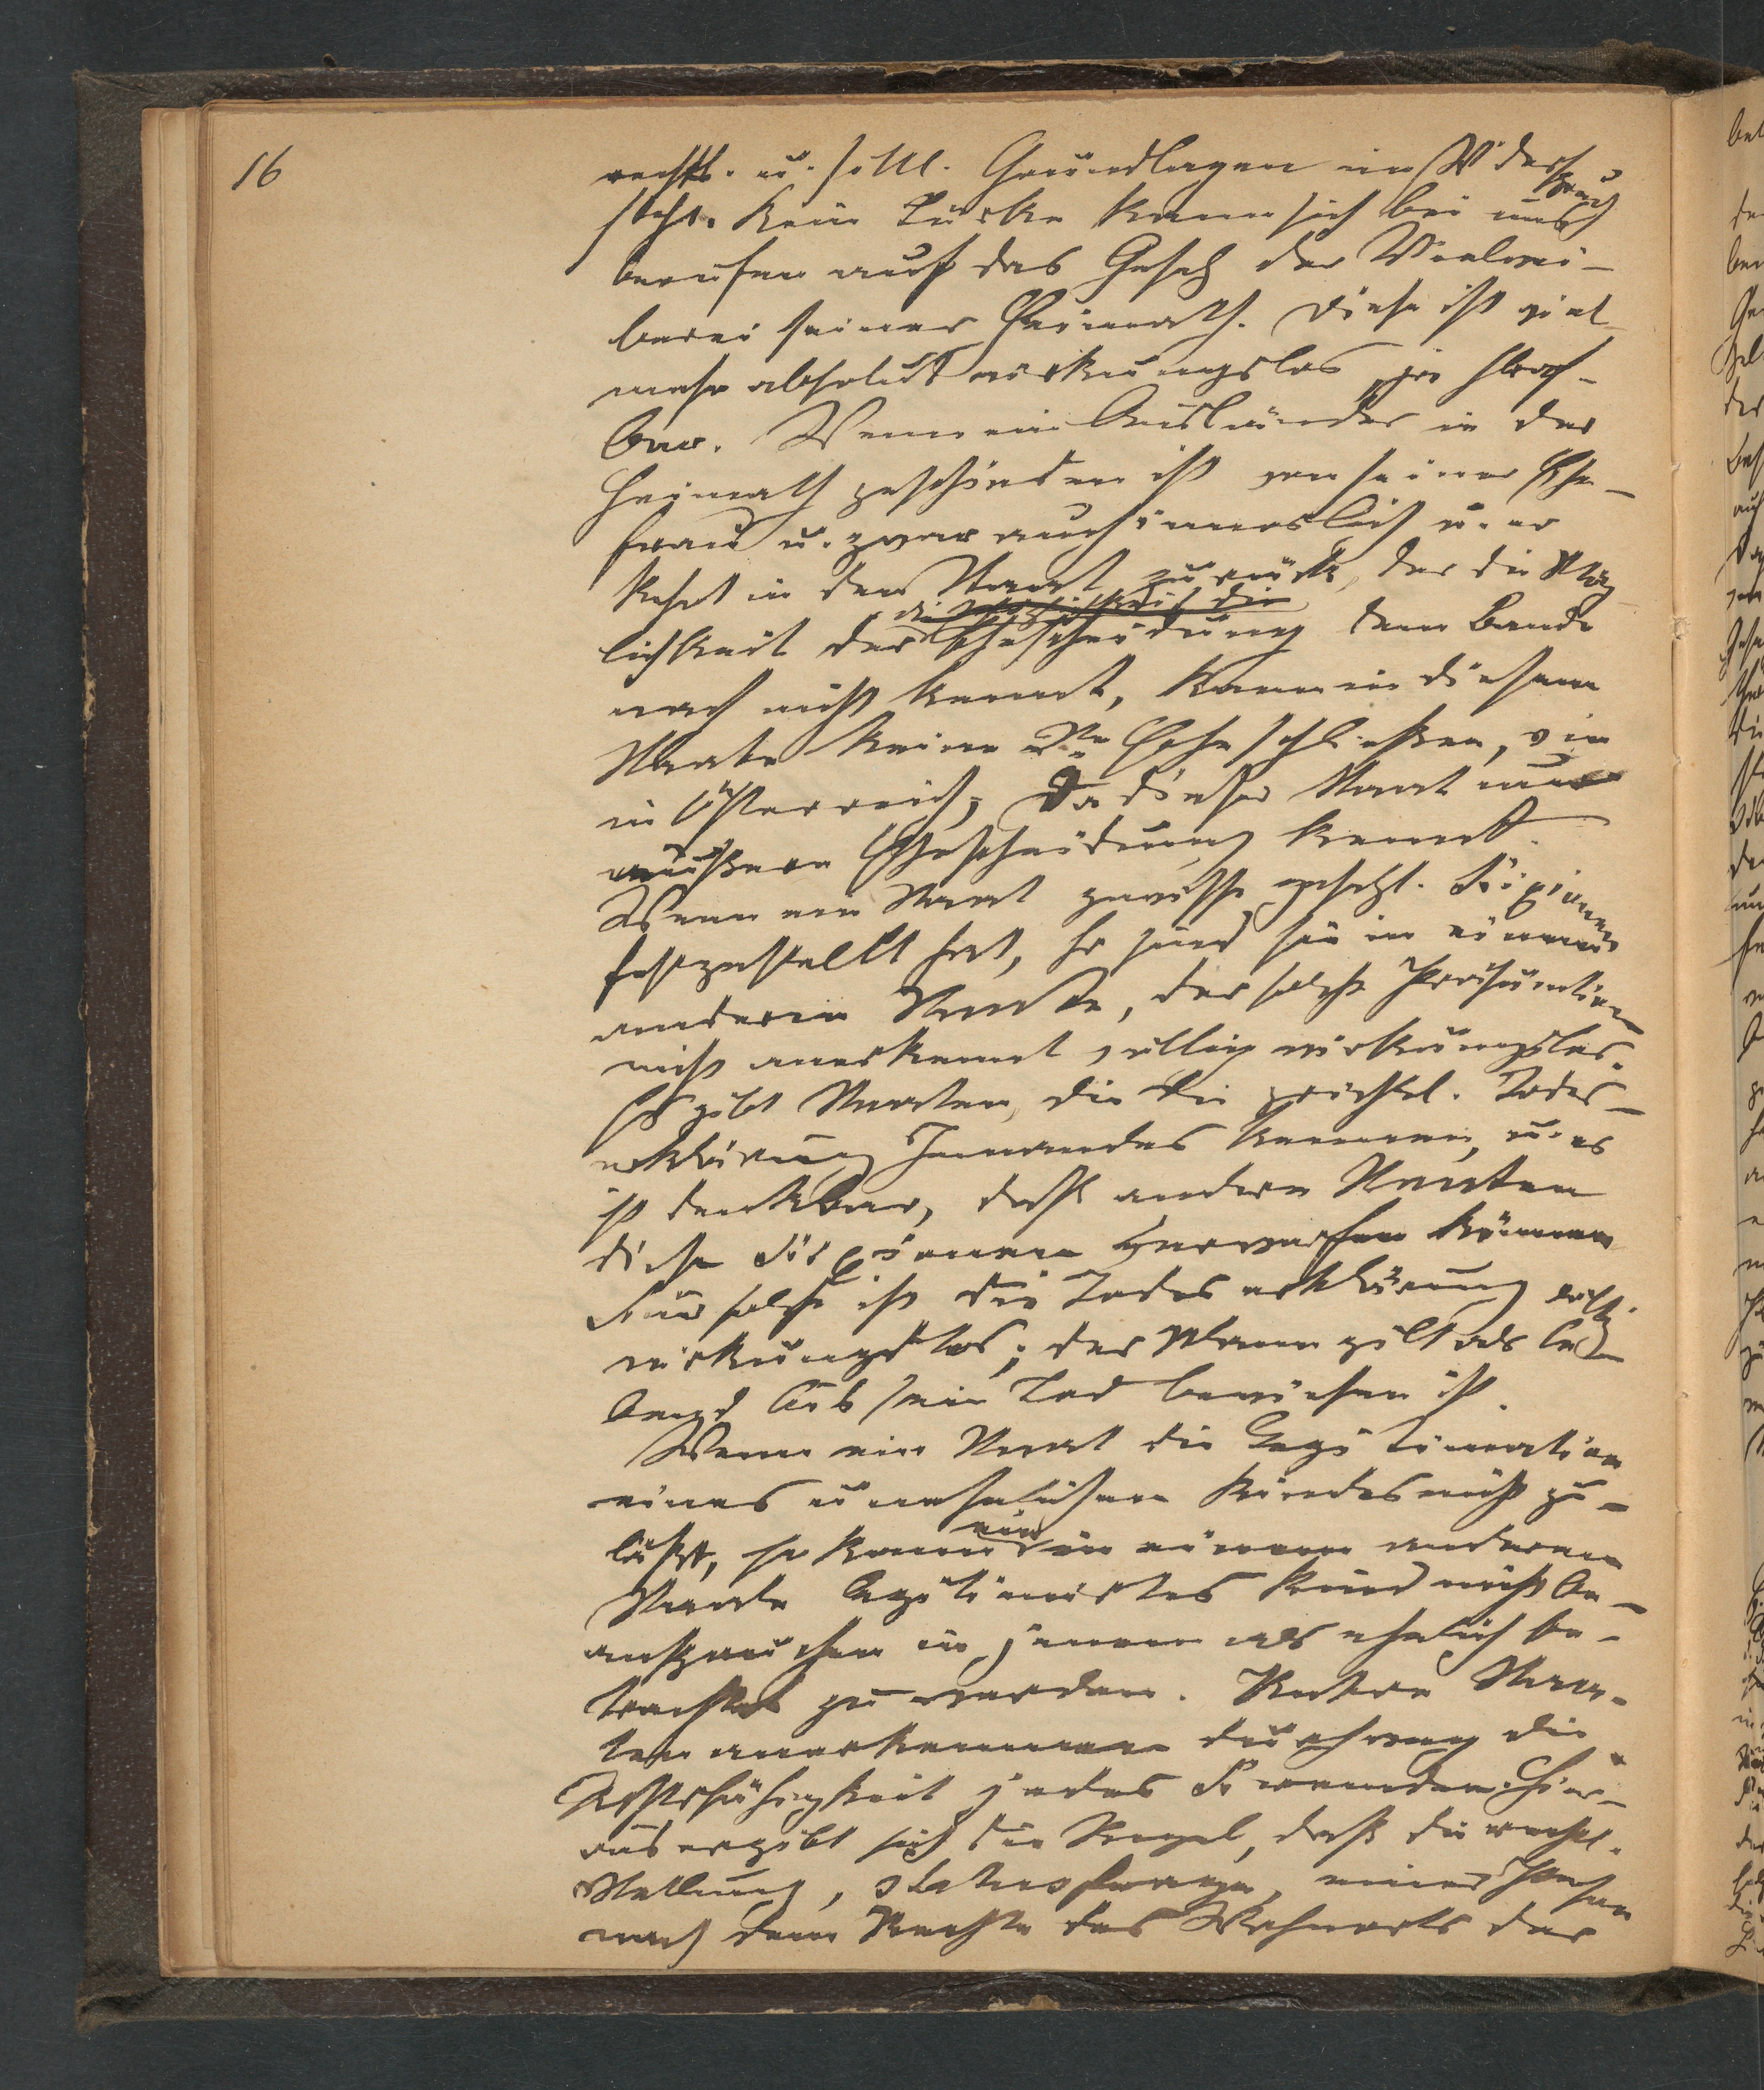 16
rechtl. u. sittl. Grundlagen im Widerspruch
steht. Kein Türke kann sich bei uns
berufen auf das Gesetz der Vielwei-
berei seiner Heimath. Diese ist viel-
mehr absolut wirkungslos, ja straf-
bar. Wenn ein Ausländer in der
Heimath geschieden ist von seiner Ehe-
frau u. zwar auch innerlich u. er
kehrt in den Staat zurück, der die Mög-
lichkeit der Ehescheidung dem Bande
nach nicht kennt, kann in diesem
Staate keine 2te Ehe schließen, wie
in Österreich, da dieser Staat nur
äußere Ehescheidung kennt.
Wenn ein Staat gewisse gesetzl. Fixionen
festgestellt hat, so sind sie in einem
anderen Staate, der solche Präsumtion
nicht anerkennt völlig wirkungslos.
Es gibt Staaten, die die gerichtl. Todes-
erklärung Jemandes kennen, u. es
ist denkbar, daß andere Staaten
diese Fixionen verwerfen können
Für solche ist die Todeserklärung völlig
wirkungslos; der Mann gilt als le-
bend bis sein Tod bewiesen ist.
Wenn ein Staat die Legitimation
eines unehelichen Kindes nicht zu-
läßt, so kann ein in einem anderen
Staate legitimirtes Kind nicht be-
anspruchen in jenem als ehelich be-
trachtet zu werden. Staa-
ten anerkennen durchweg die
Rechtsfähigkeit jedes Fremden. Hier-
aus ergibt sich die Regel, daß die rechtl.
Stellung, Statusfrage, einer Person
nach dem Rechte des Wohnorts der